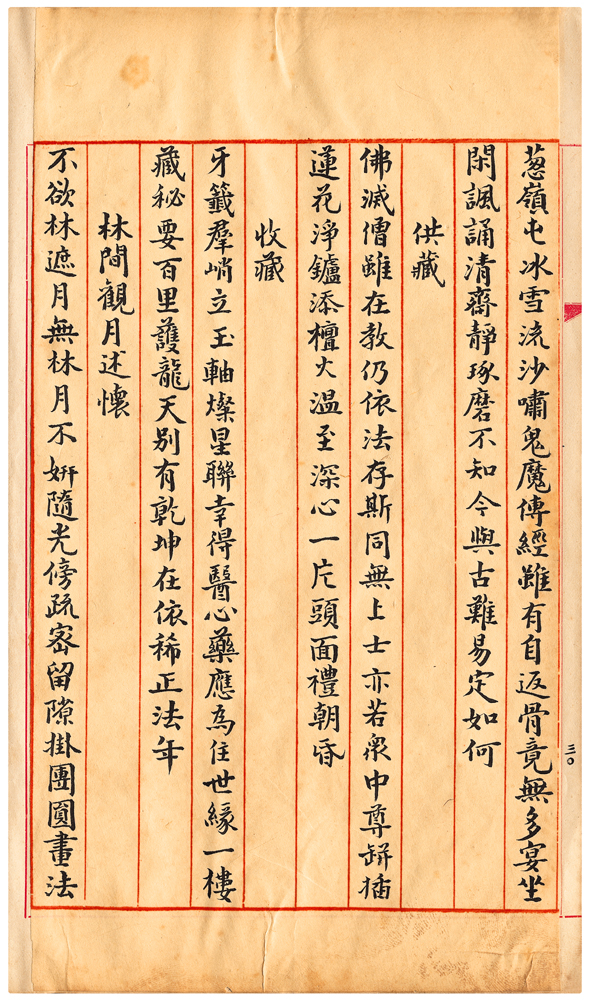 葱嶺屯冰雪流沙嘯鬼魔傳經雖有自返骨竟無多宴坐
閑諷誦清齋靜琢磨不知今與古難易定如何
供藏
佛滅僧雖在教仍依法存斯同無上士亦若衆中尊缾插
蓮花淨鑪添檀火溫至深心一片頭面禮朝昏
收藏
牙籤羣峭立玉軸燦星聯幸得醫心藥應為住世緣一樓
藏秘要百里護龍天别有乾坤在依稀正法年
林間觀月述懷
不欲林遮月無林月不妍隨光傍疏密留隙掛團圓畫法
三〇